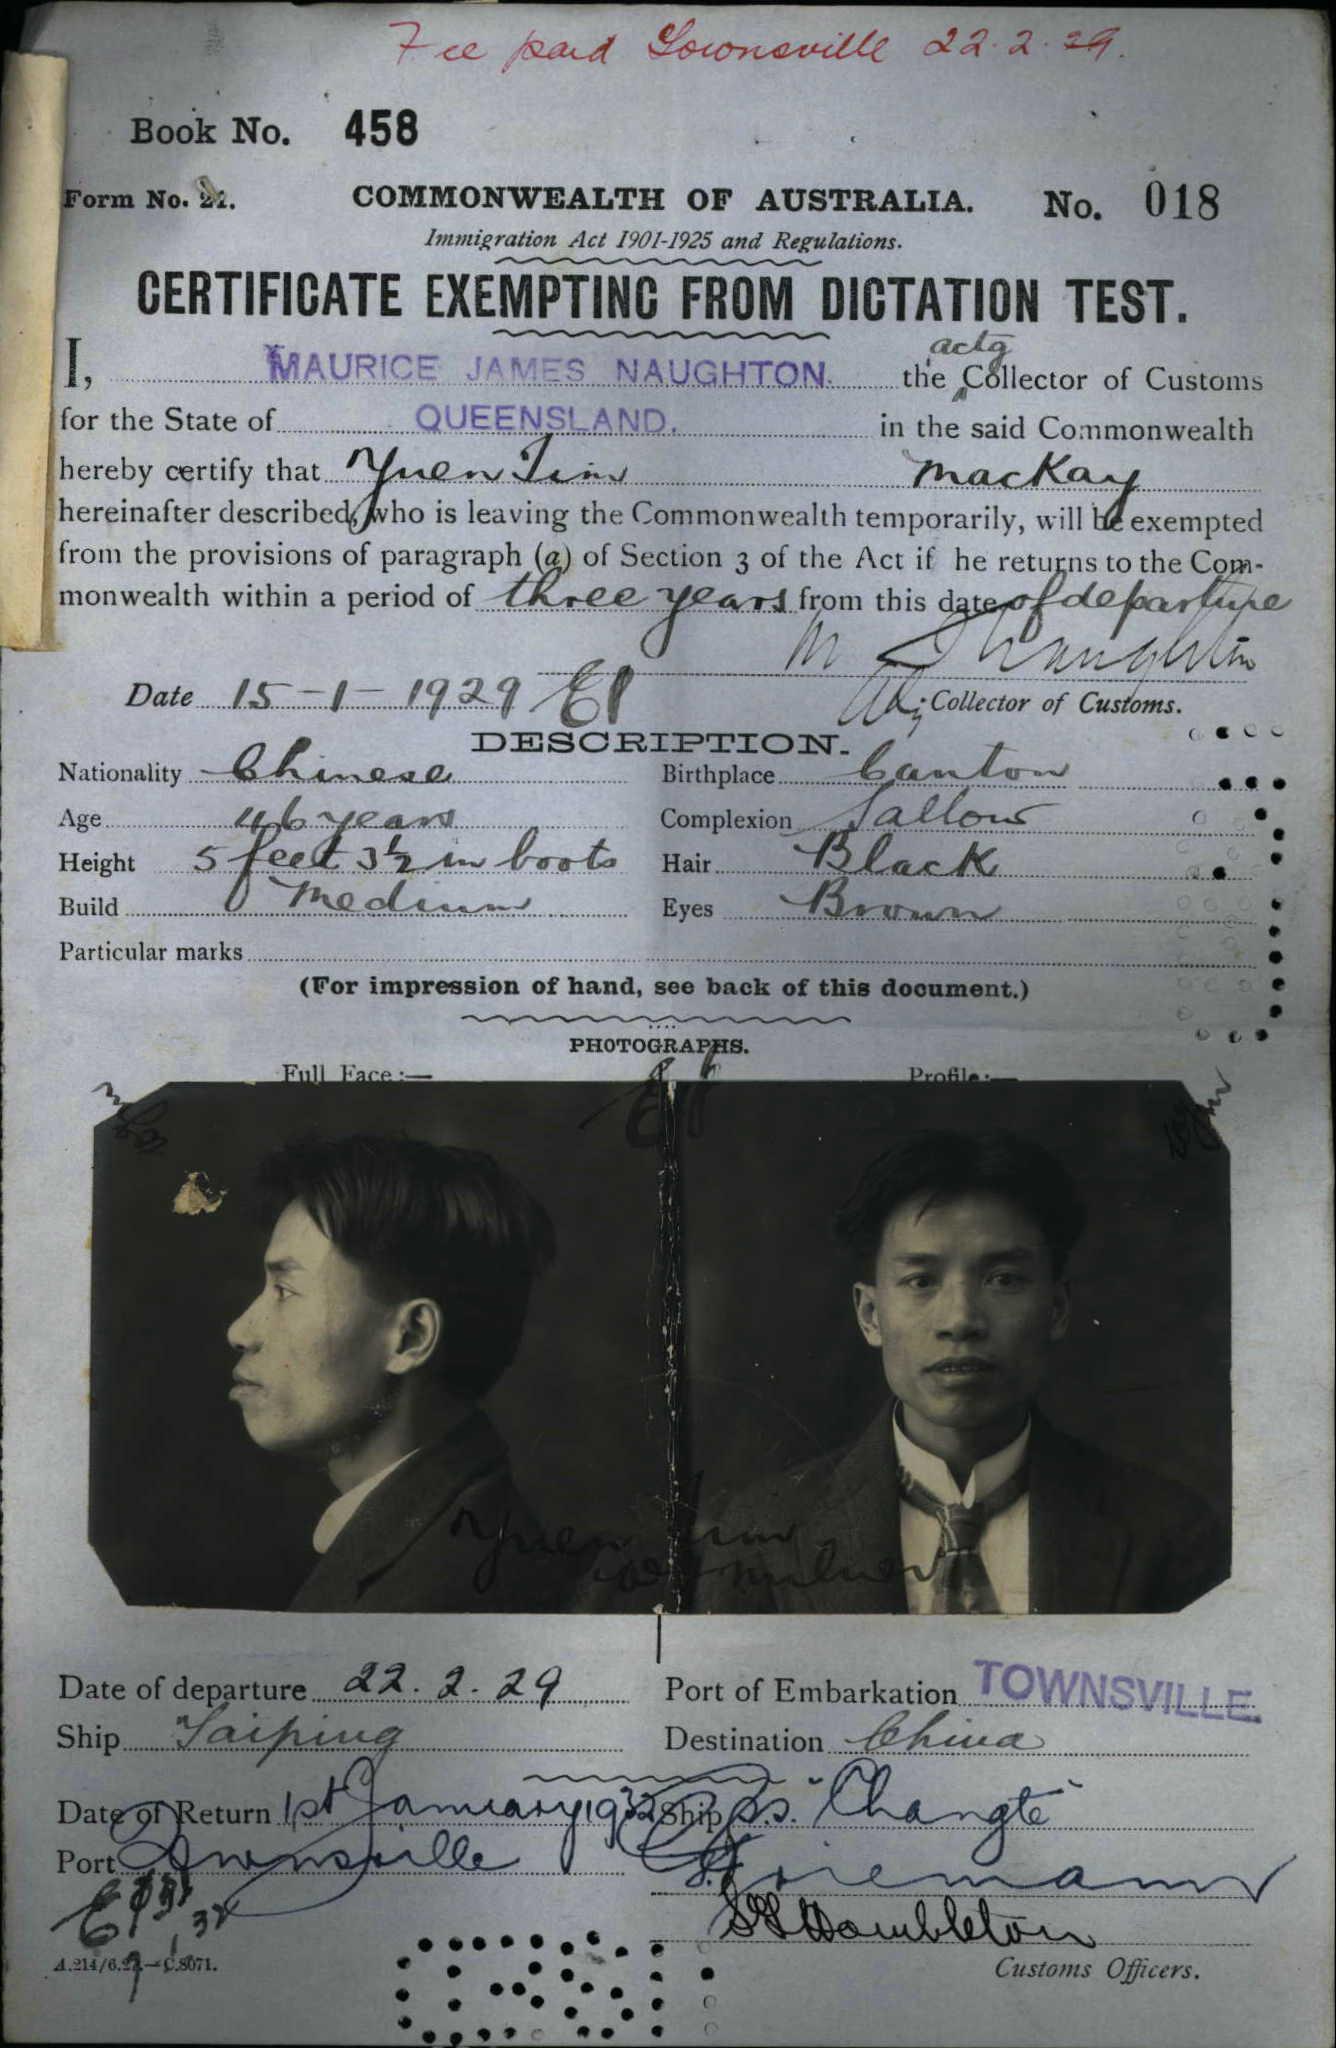 Fee paid Townsville 22.2.29.
Book No. 458
Form No. 21. COMMONWEALTH OF AUSTRALIA. No. 018
Immigration Act 1901-1925 and Regulations.
CERTIFICATE EXEMPTING FROM DICTATION TEST.
I, MAURICE JAMES NAUGHTON. the actg Collector of Customs
for the State of QUEENSLAND. in the said Commonwealth
hereby certify that Yuen Tim Mackay
hereinafter described, who is leaving the Commonwealth temporarily, will be exempted
from the provisions of paragraph (a) of Section 3 of the Act if he returns to the Com-
monwealth within a period of three years from this date of departure
M J Naughton
Date 15-1-1929
Collector of Customs.
DESCRIPTION.
Nationality Chinese Birthplace Canton
Age 46 years Complexion Sallow
Height 5 feet 3½ in boots Hair Black
Build Medium Eyes Brown
Particular marks
(For impression of hand, see back of this document.)
PHOTOGRAPHS.
Full Face:— Profile:—
Yuen Tim
Date of departure 22.2.29 Port of Embarkation TOWNSVILLE.
Ship Taiping Destination China
Date of Return 1st January 1932 Ship s.s. "Changte"
Port Townsville
Customs Officers.